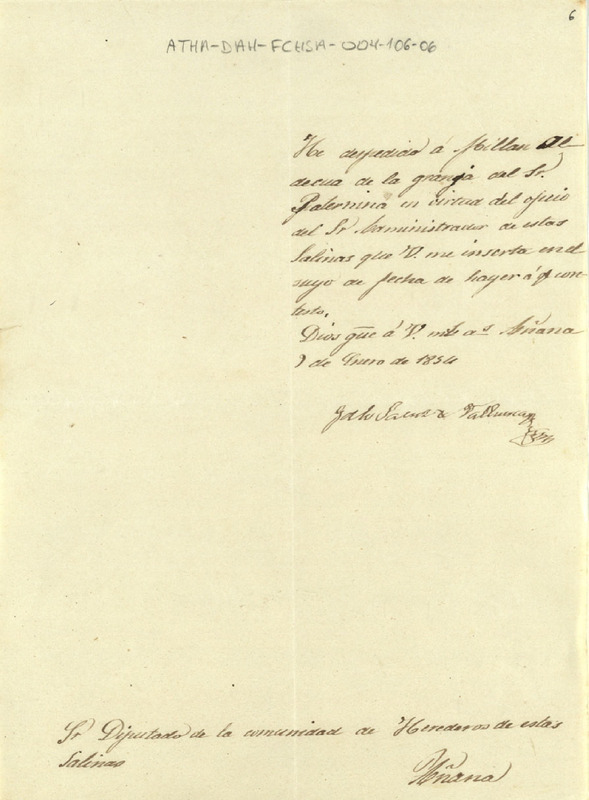 6
ATHA-DAH-FCHSA-004-106-06
He despedido á Millan
decua de la granja del Sr.
Palernina en virtud del oficio
del Sr Administrador de estas
Salinas que V. me inserta en el
suyo de fecha de hayer á q con-
testo.
Dios gue á V. ms as Añana
9 de Enero de 1854
Saenz de
Sr Diputado de la comunidad de Herederos de estas
Salinas
Añana